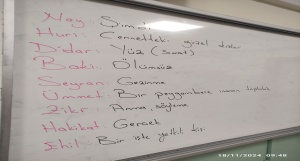 May: Şimdi
Huri: Cennetteki güzel kızlar
Didar: Yüz (Surat)
Baki: Ölümsüz
Seyran: Gezinme
Ümmet: Bir peygambere inanan topluluk
Zikr: Anma, söyleme
Hakikat: Gerçek
Ehil: Bir işte yetkili kişi
18/11/2024 09:48